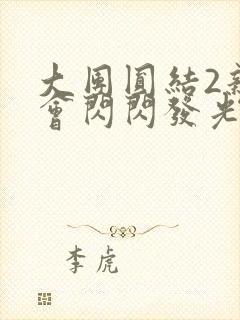 大團圓結2新
會閃閃發光
李虎